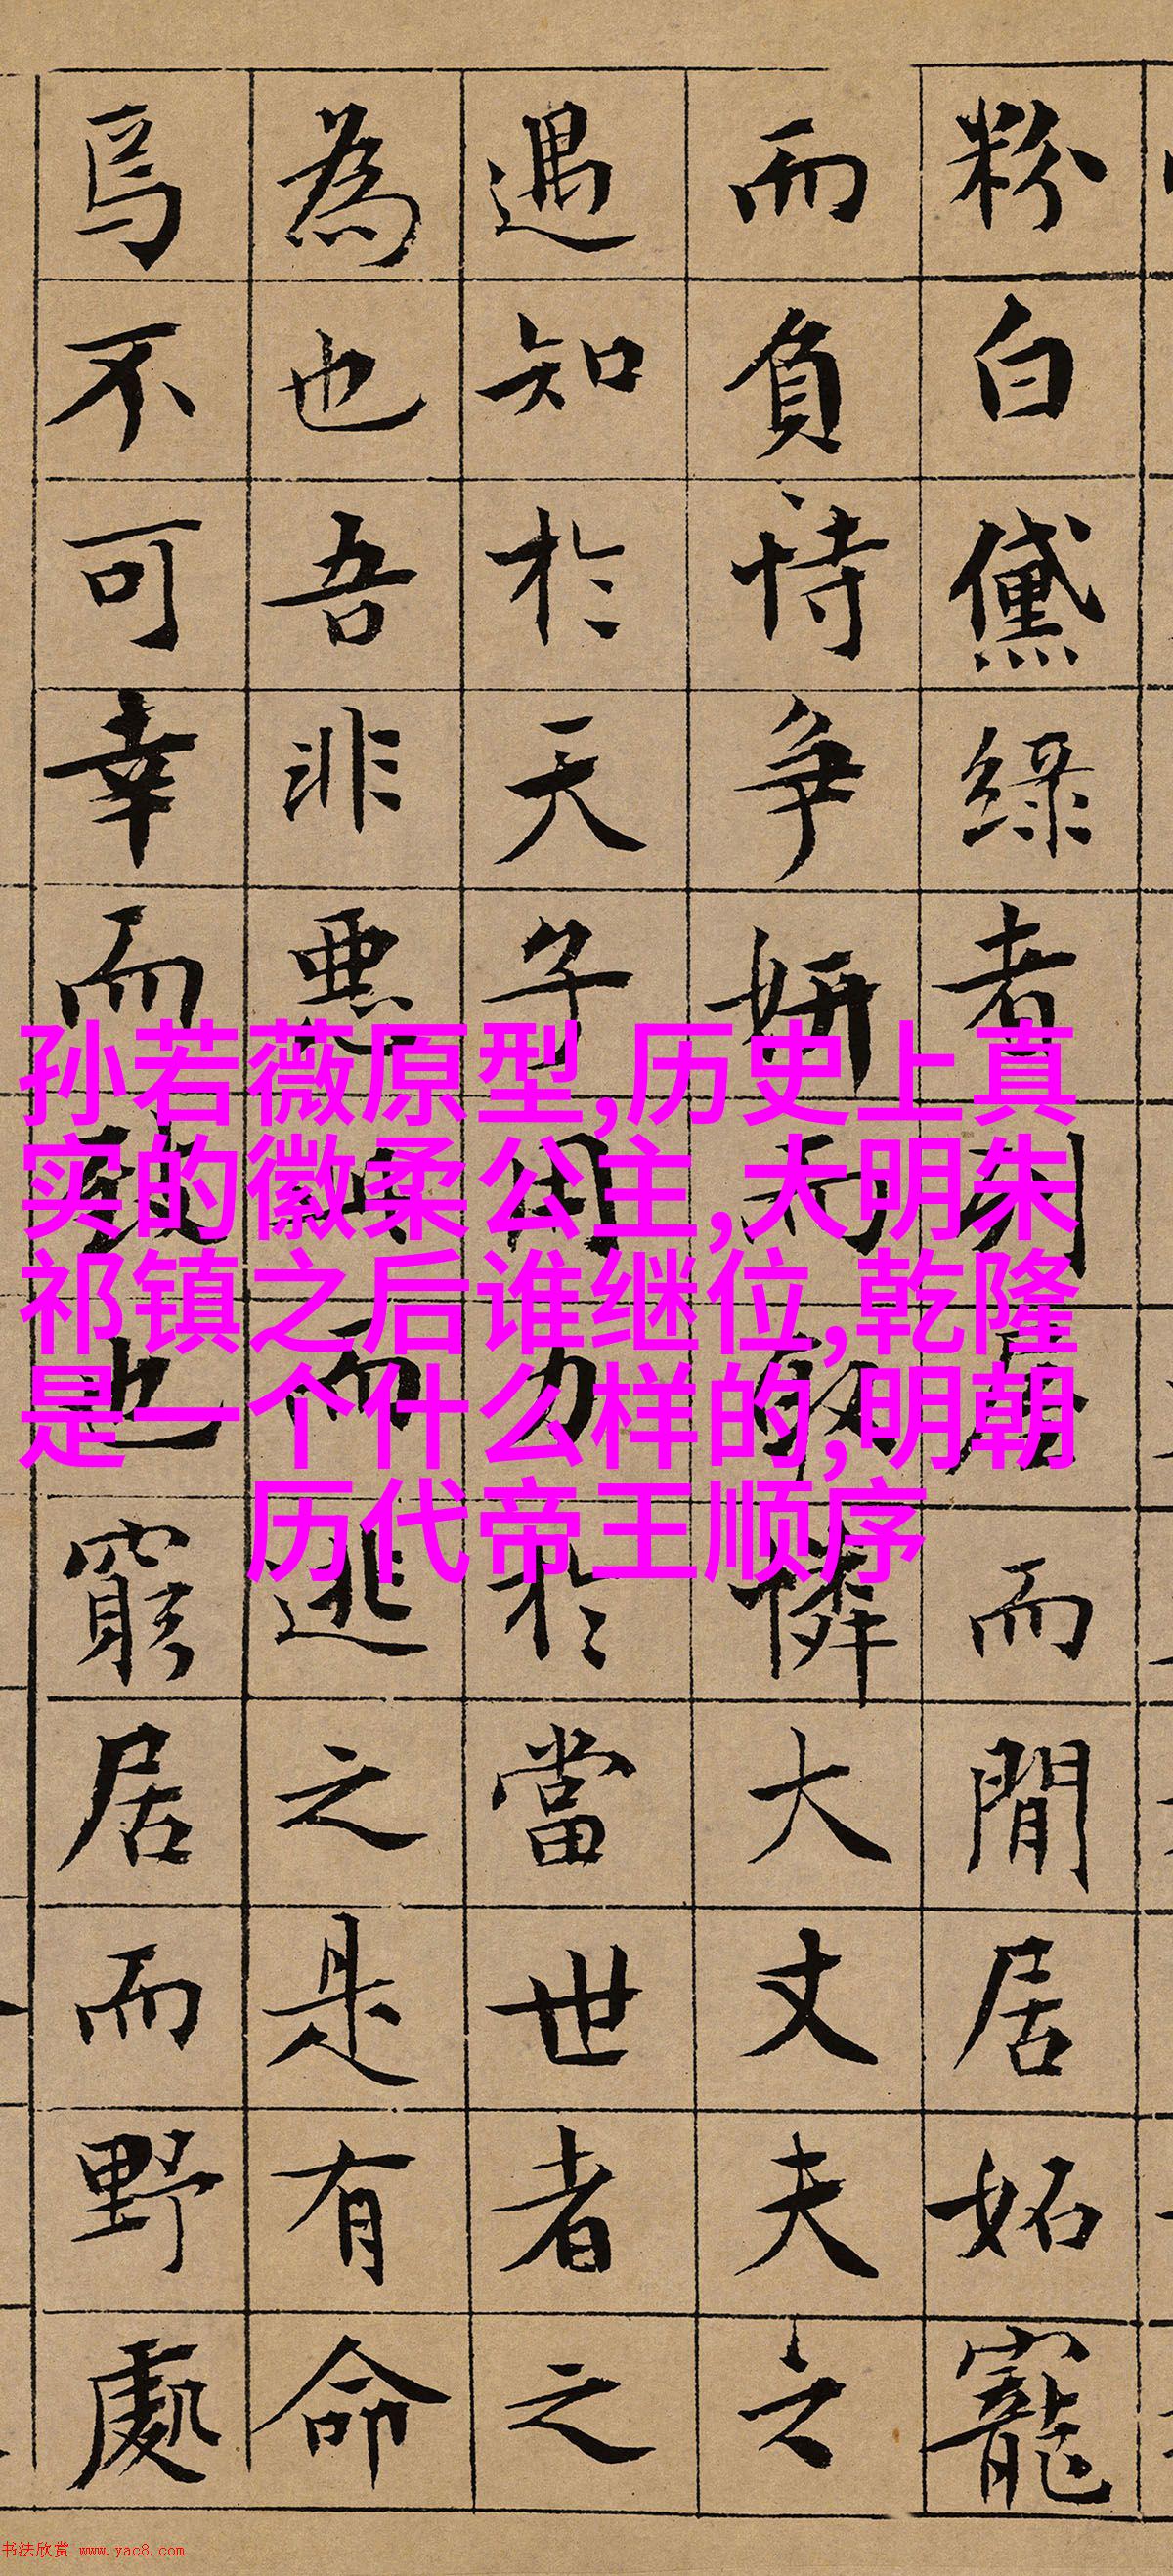 粉白黛綠者列屋而閒居妬寵
而負恃争妍而取憐大丈夫之
遇知於天子用力於當世者之
為也吾非惡此而逃之是有命
焉不可幸而致也窮居而野處
孙若薇原型,历史上真
实的徽柔公主,大明朱
祁镇之后谁继位,乾隆
是一个什么样的,明朝
历代帝王顺序
书法欣赏 www.yac8.com